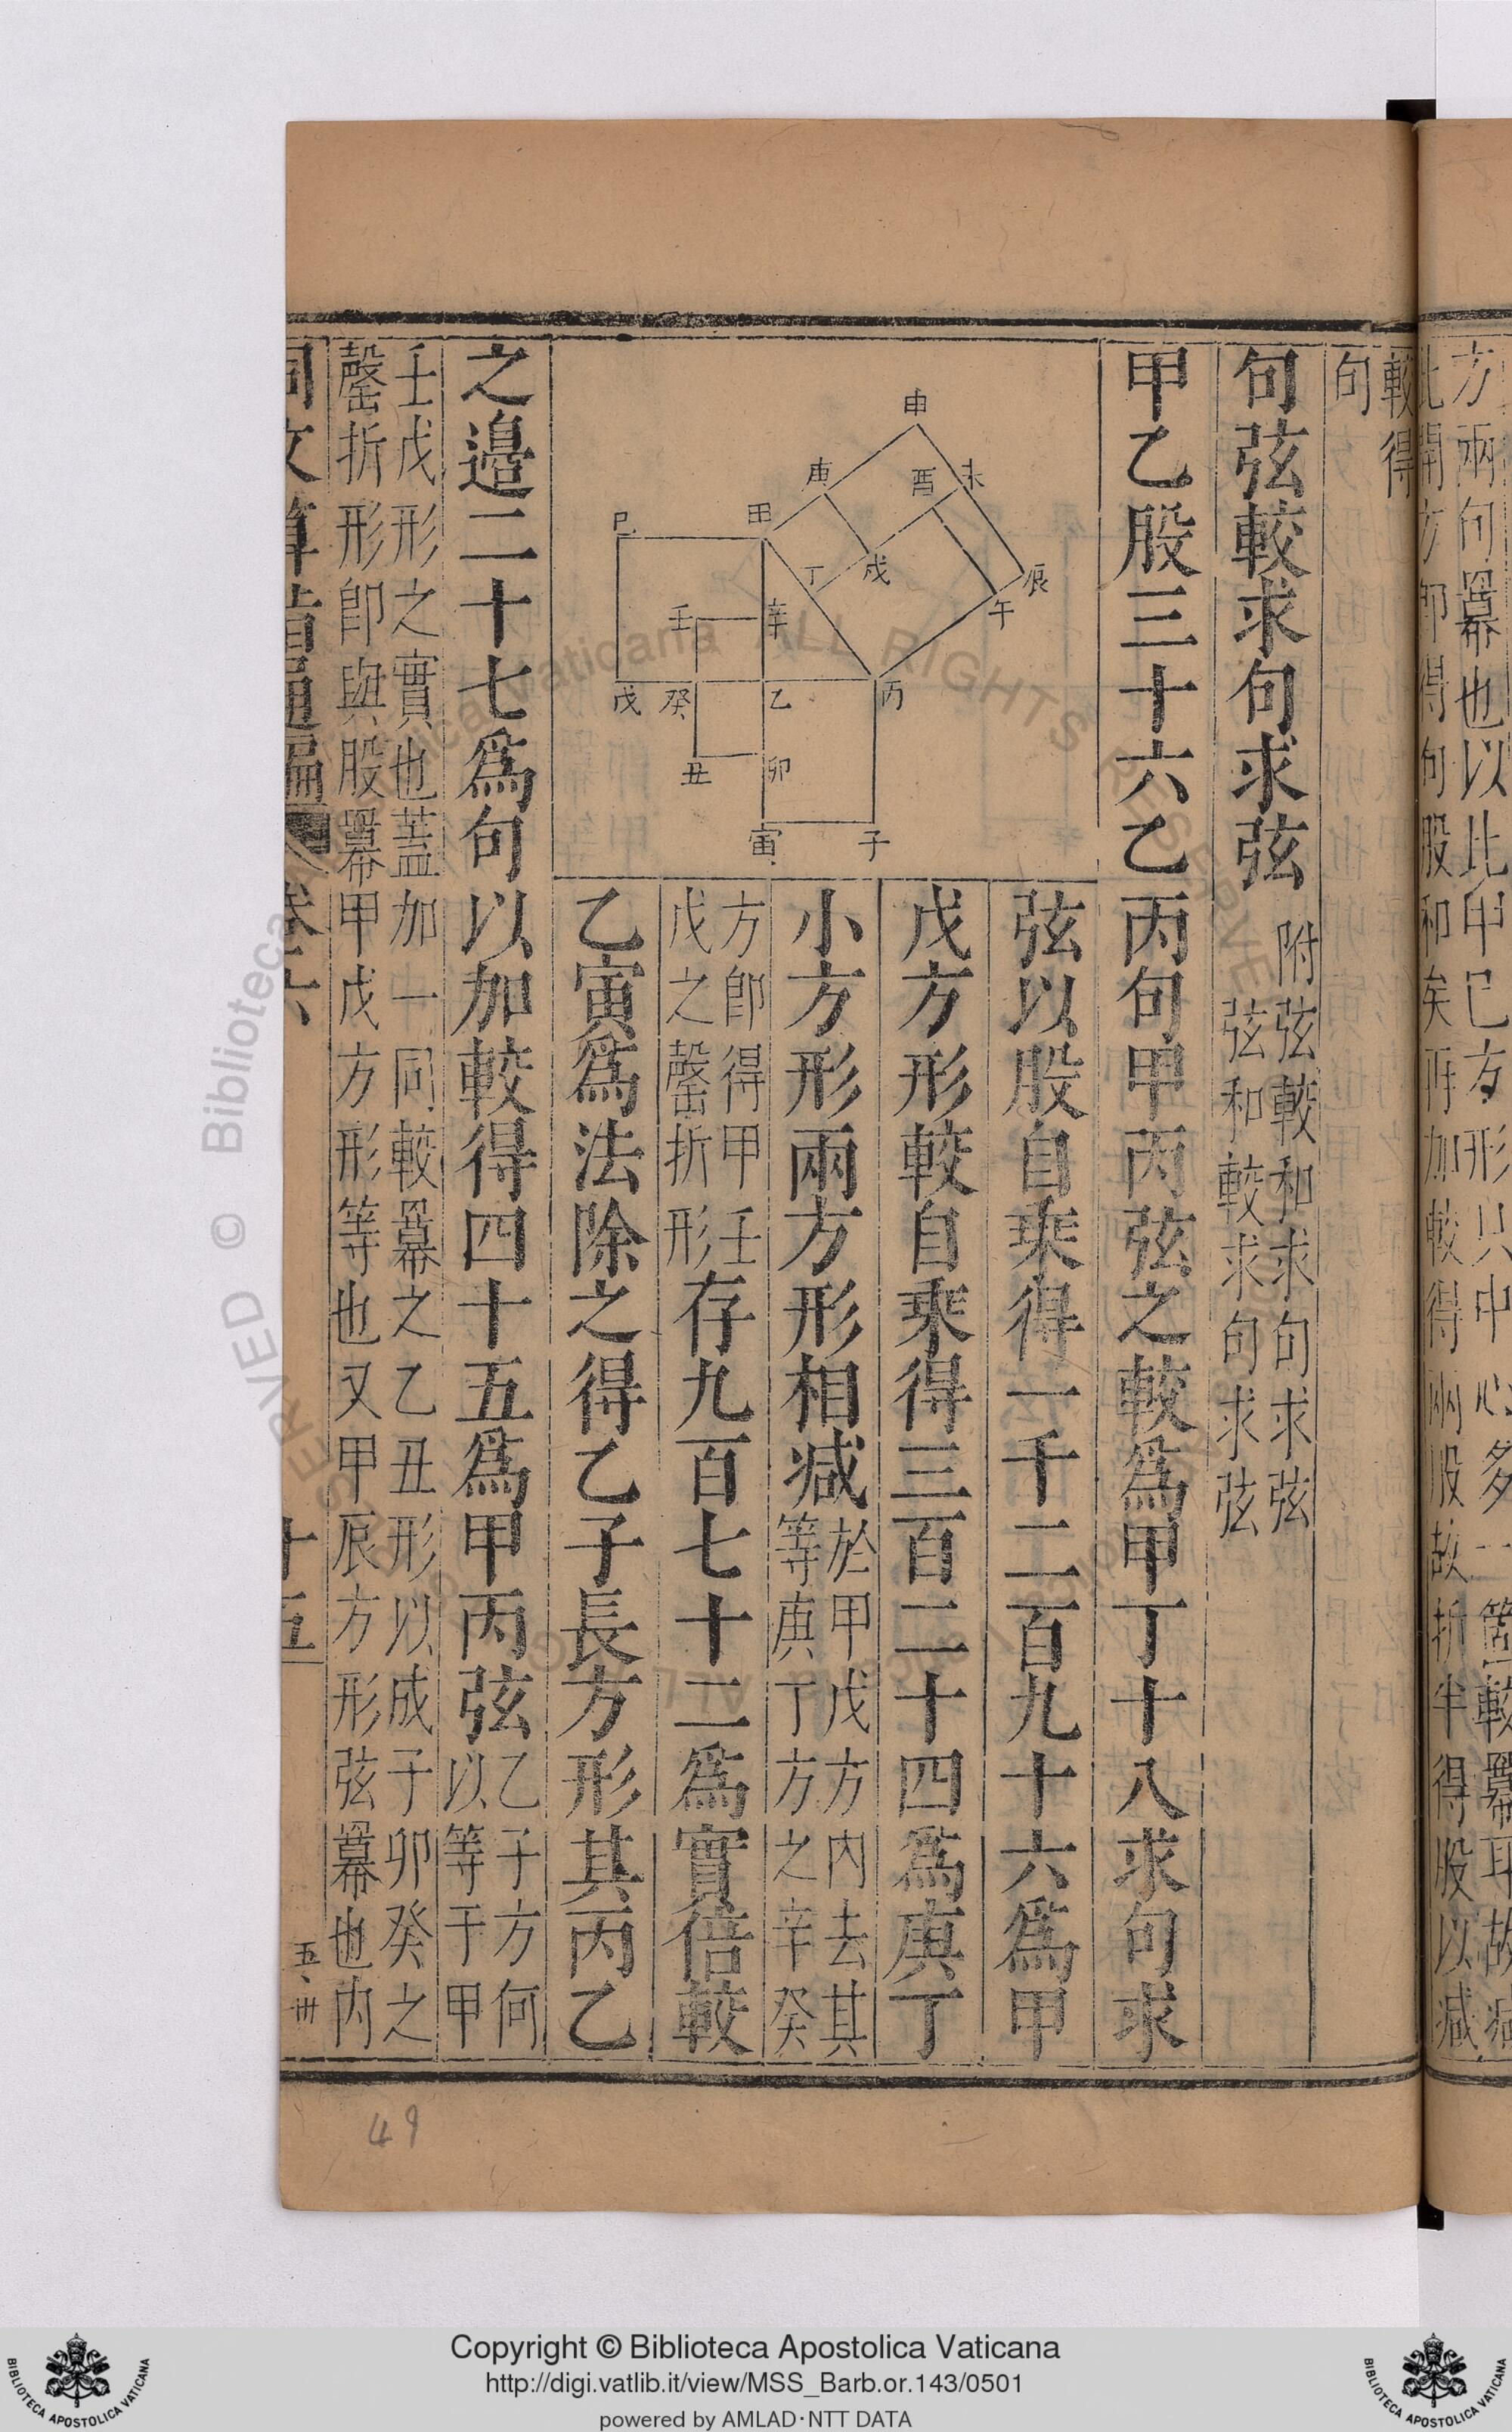 方兩句羃也以此甲巳方形只中心多一箇較羃耳故減
此開方即得句股和矣再加較得兩股故折半得股以減
較得
句
句弦較求句求弦
附弦較和求句求弦
弦和較求句求弦
甲乙股三十六乙丙句甲丙弦之較爲甲丁十八求句求
弦以股自乘得一千二百九十六爲甲
戊方形較自乘得三百二十四爲庚丁
小方形兩方形相減
於甲戊方內去其
等庚丁方之辛癸
方卽得甲壬
戊之罄折形
存九百七十二爲實倍較
乙寅爲法除之得乙子長方形其丙乙
之邊二十七爲句以加較得四十五爲甲丙弦
乙子方何
以等于甲
壬戊形之實也葢加一同較羃之乙丑形以成子卯癸之
罄折形卽與股羃甲戊方形等也又甲辰方形弦羃也內
同文算指通編
卷六
十五
五、卌
申
庚
酉
未
巳
甲
丁
戌
辰
壬
辛
午
戊
癸
乙
丙
丑
卯
寅
子
49
© Biblioteca Apostolica Vaticana ALL RIGHTS RESERVED
Copyright © Biblioteca Apostolica Vaticana
http://digi.vatlib.it/view/MSS_Barb.or.143/0501
powered by AMLAD·NTT DATA
BIBLIOTECA APOSTOLICA VATICANA
BIBLIOTECA APOSTOLICA VATICANA